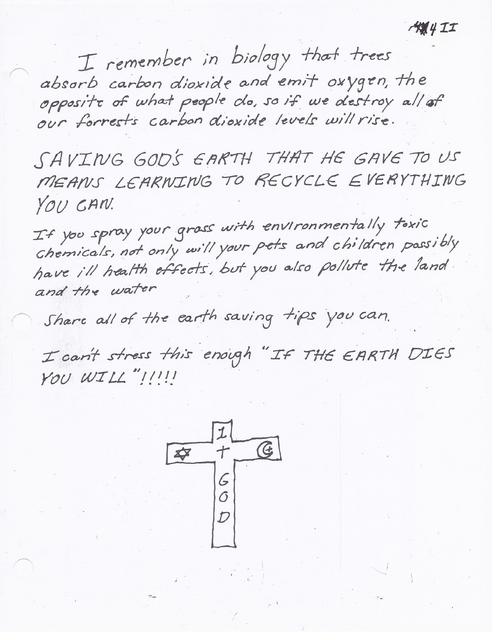 4 II
I remember in biology that trees
absorb carbon dioxide and emit oxygen, the
opposite of what people do, so if we destroy all of
our forrests carbon dioxide levels will rise.
SAVING GOD'S EARTH THAT HE GAVE TO US
MEANS LEARNING TO RECYCLE EVERYTHING
YOU CAN.
If you spray your grass with environmentally toxic
chemicals, not only will your pets and children possibly
have ill health effects, but you also pollute the land
and the water
Share all of the earth saving tips you can.
I can't stress this enough "IF THE EARTH DIES
YOU WILL"!!!!!
1
G
O
D